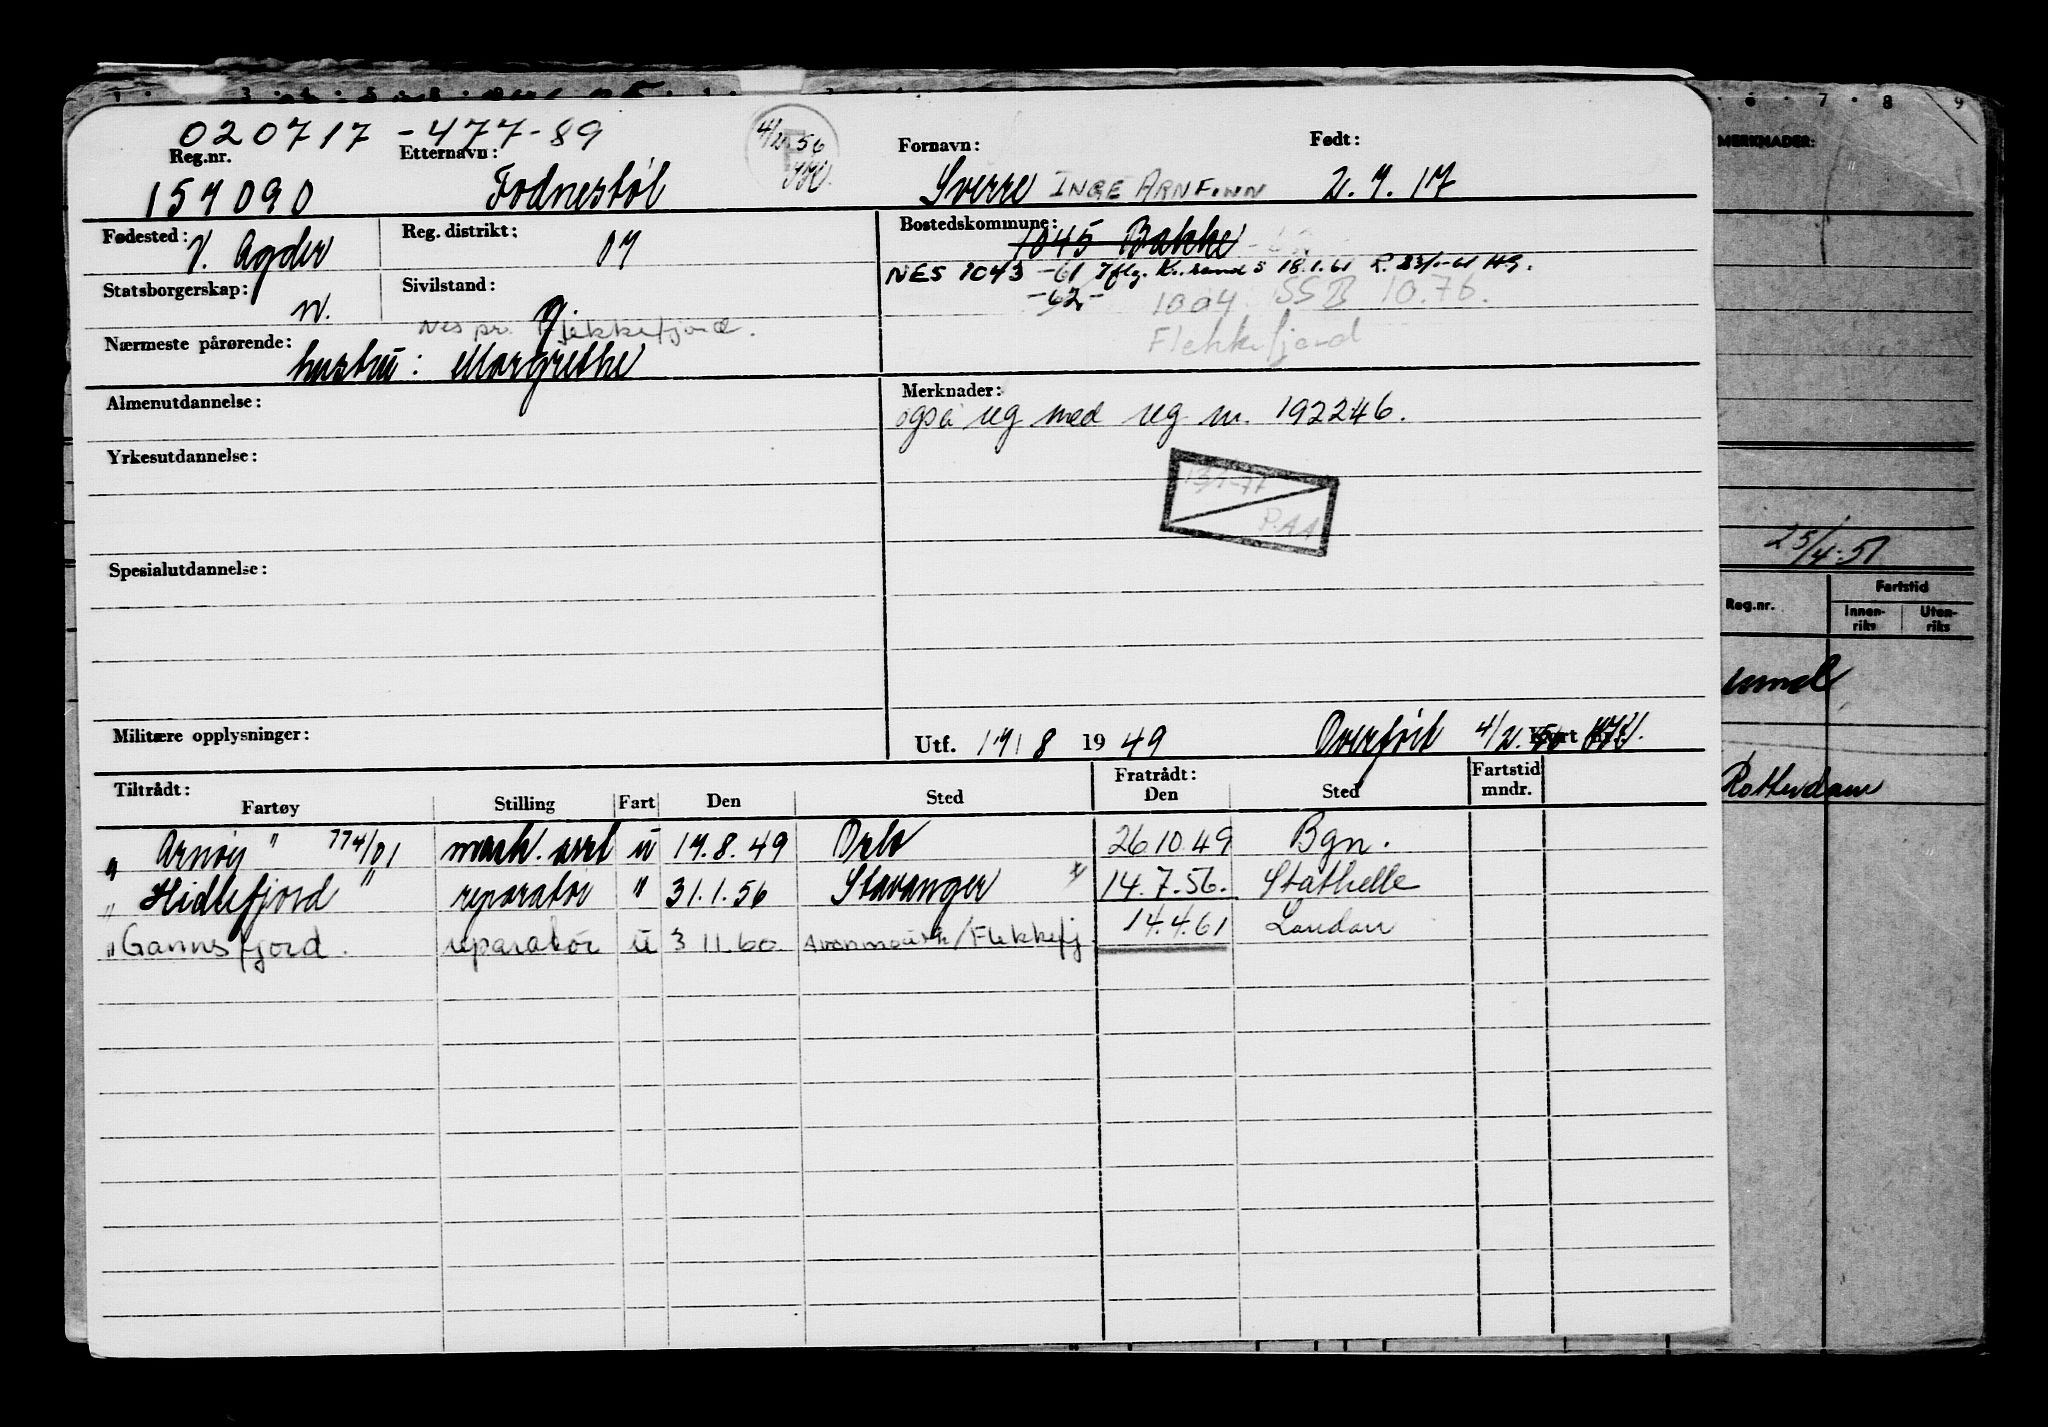 020717-477-89
Reg.nr. Etternavn: 4/2.56 Fornavn: Født:
157090 Fodnestøl Sverre INGE ARNFINN 2.7.17
Fødested: V. Agder Reg. distrikt: 07 Bostedskommune: 1045 Bakke
NES 1043 -61 Iflg. Kr.sand S 18.1.61
Statsborgerskap: n. Sivilstand: g. -62- 1004 SSB 10.76.
Nes pr. Flekkefjord. Flekkefjord
Nærmeste pårørende: hustru: Margrethe
Almenutdannelse: Merknader:
også reg med reg nr. 192246.
Yrkesutdannelse:
13/1-77
P.AA
Spesialutdannelse:
Militære opplysninger: Utf. 17/8 1949 Overført 4/2.56
Tiltrådt: Fratrådt: Fartstid
Fartøy Stilling Fart Den Sted Den Sted mndr.
"Arnøy" 774/01 mask. asst u 17.8.49 Oslo 26.10.49 Bgn.
"Hidlefjord" reparatør " 31.1.56 Stavanger 14.7.56. Stathelle
"Gannsfjord. reparatør u 3 11.60. Avonmouth/Flekkefj 14.4.61 London
6 7 8 9
MERKNADER:
25/4-51
Reg.nr. Fartstid
Innen-riks Uten-riks
Rotterdam